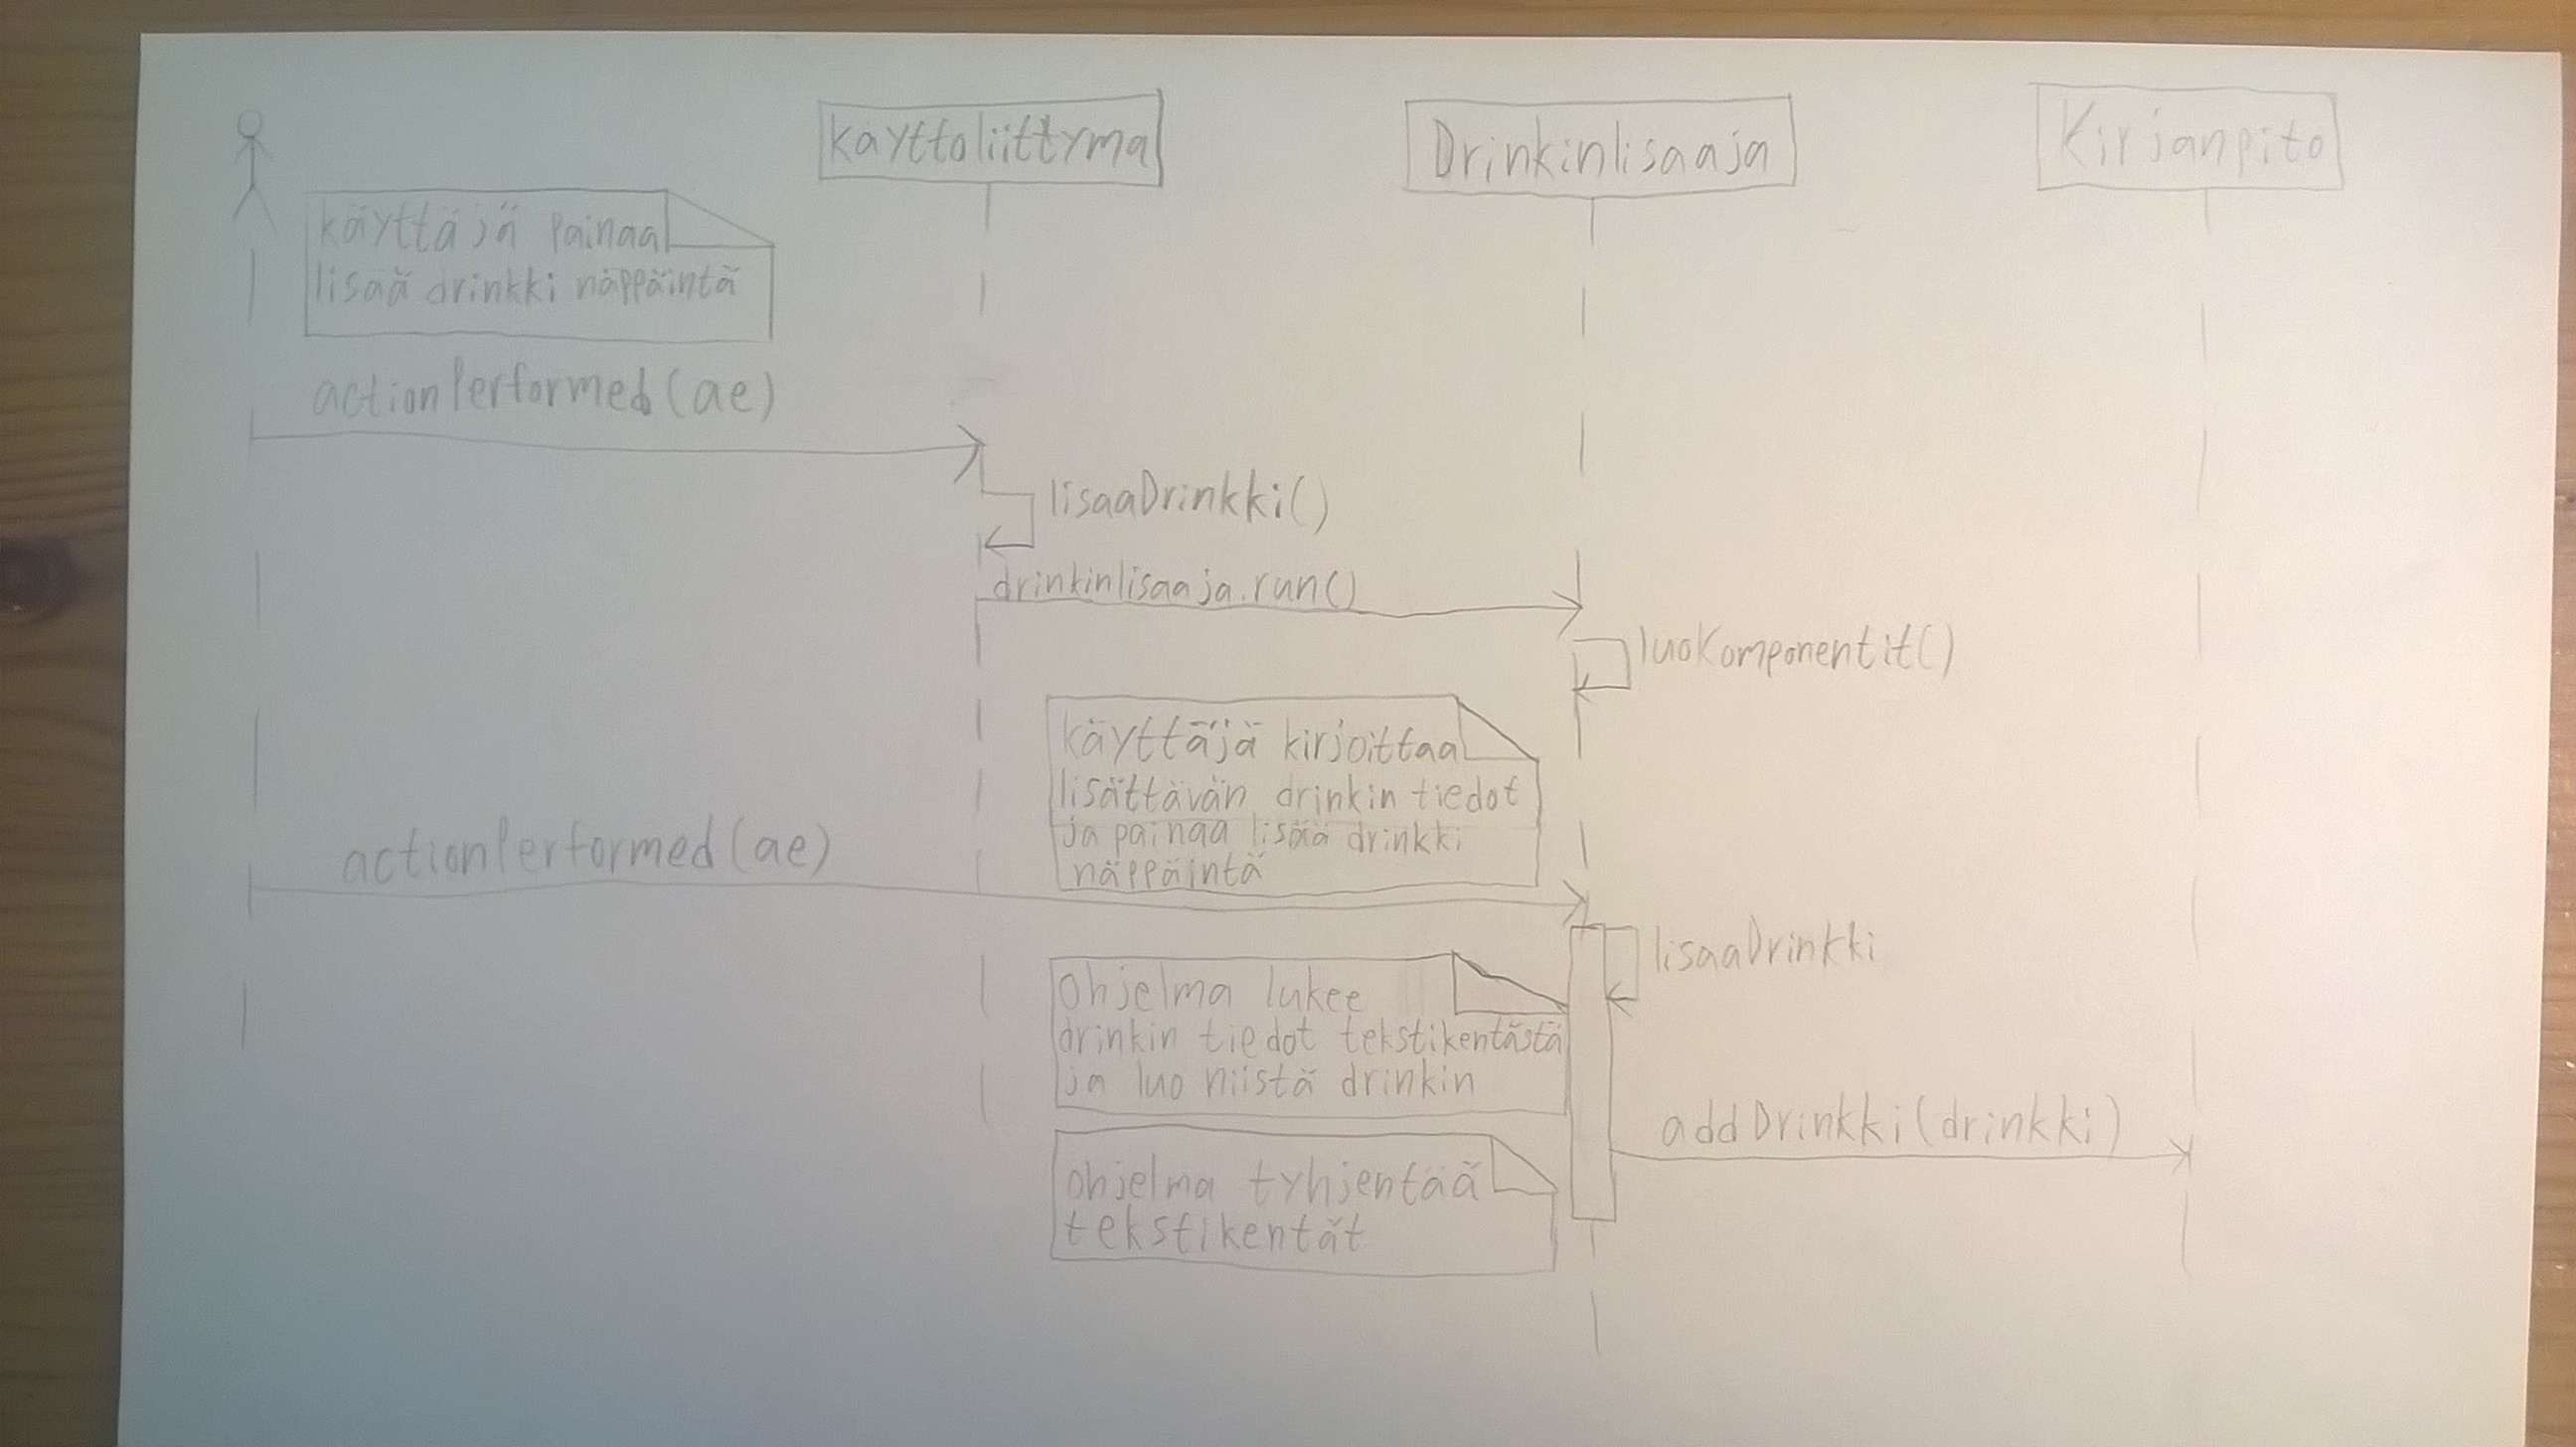 Kayttoliittyma
Drinkinlisaaja
Kirjanpito
käyttäjä painaa
lisää drinkki näppäintä
actionPerformed(ae)
lisaaDrinkki()
drinkinlisaaja.run()
luoKomponentit()
käyttäjä kirjoittaa
lisättävän drinkin tiedot
ja painaa lisää drinkki
näppäintä
actionPerformed(ae)
lisaaDrinkki
ohjelma lukee
drinkin tiedot tekstikentästä
ja luo niistä drinkin
addDrinkki(drinkki)
ohjelma tyhjentää
tekstikentät